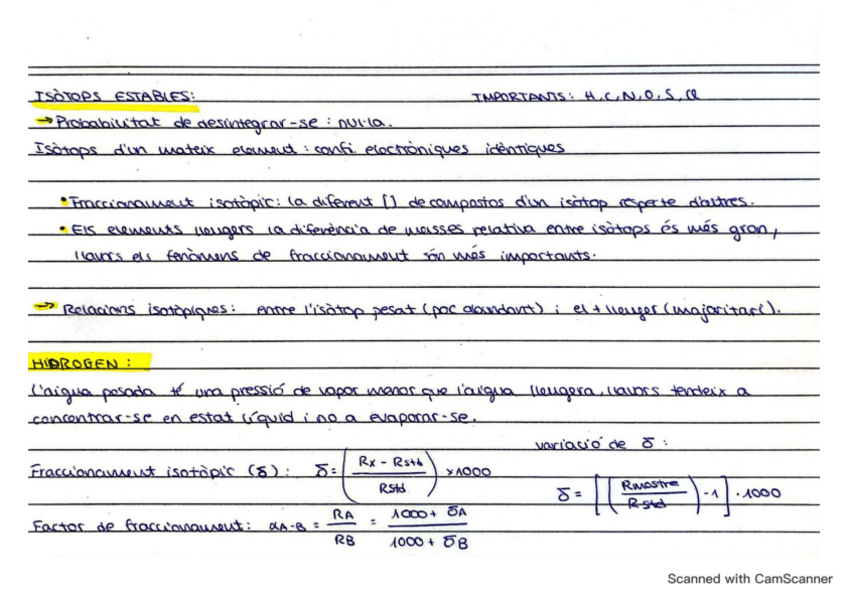 ISÒTOPS ESTABLES: IMPORTANTS: H, C, N, O, S, Cl
→ Probabilitat de desintegrar-se: nul·la.
Isòtops d'un mateix element: confi. electròniques idèntiques
• Fraccionament isotòpic: la diferent [] de compostos d'un isòtop respecte d'altres.
• Els elements lleugers la diferència de masses relativa entre isòtops és més gran,
llavors els fenòmens de fraccionament són més importants.
→ Relacions isotòpiques: entre l'isòtop pesat (poc abundant) i el + lleuger (majoritari).
HIDROGEN:
L'aigua pesada té una pressió de vapor menor que l'aigua lleugera, llavors tendeix a
concentrar-se en estat líquid i no a evaporar-se.
variació de δ:
Fraccionament isotòpic (δ): δ = ((Rx - Rstd) / Rstd) x 1000
δ = [(Rmostre / Rstd) - 1] · 1000
Factor de fraccionament: αA-B = RA / RB = (1000 + δA) / (1000 + δB)
Scanned with CamScanner